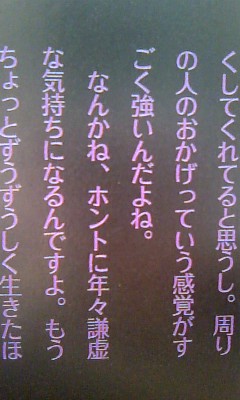 くしてくれてると思うし。周り
の人のおかげっていう感覚がす
ごく強いんだよね。
なんかね、ホントに年々謙虚
な気持ちになるんですよ。もう
ちょっとずうずうしく生きたほ